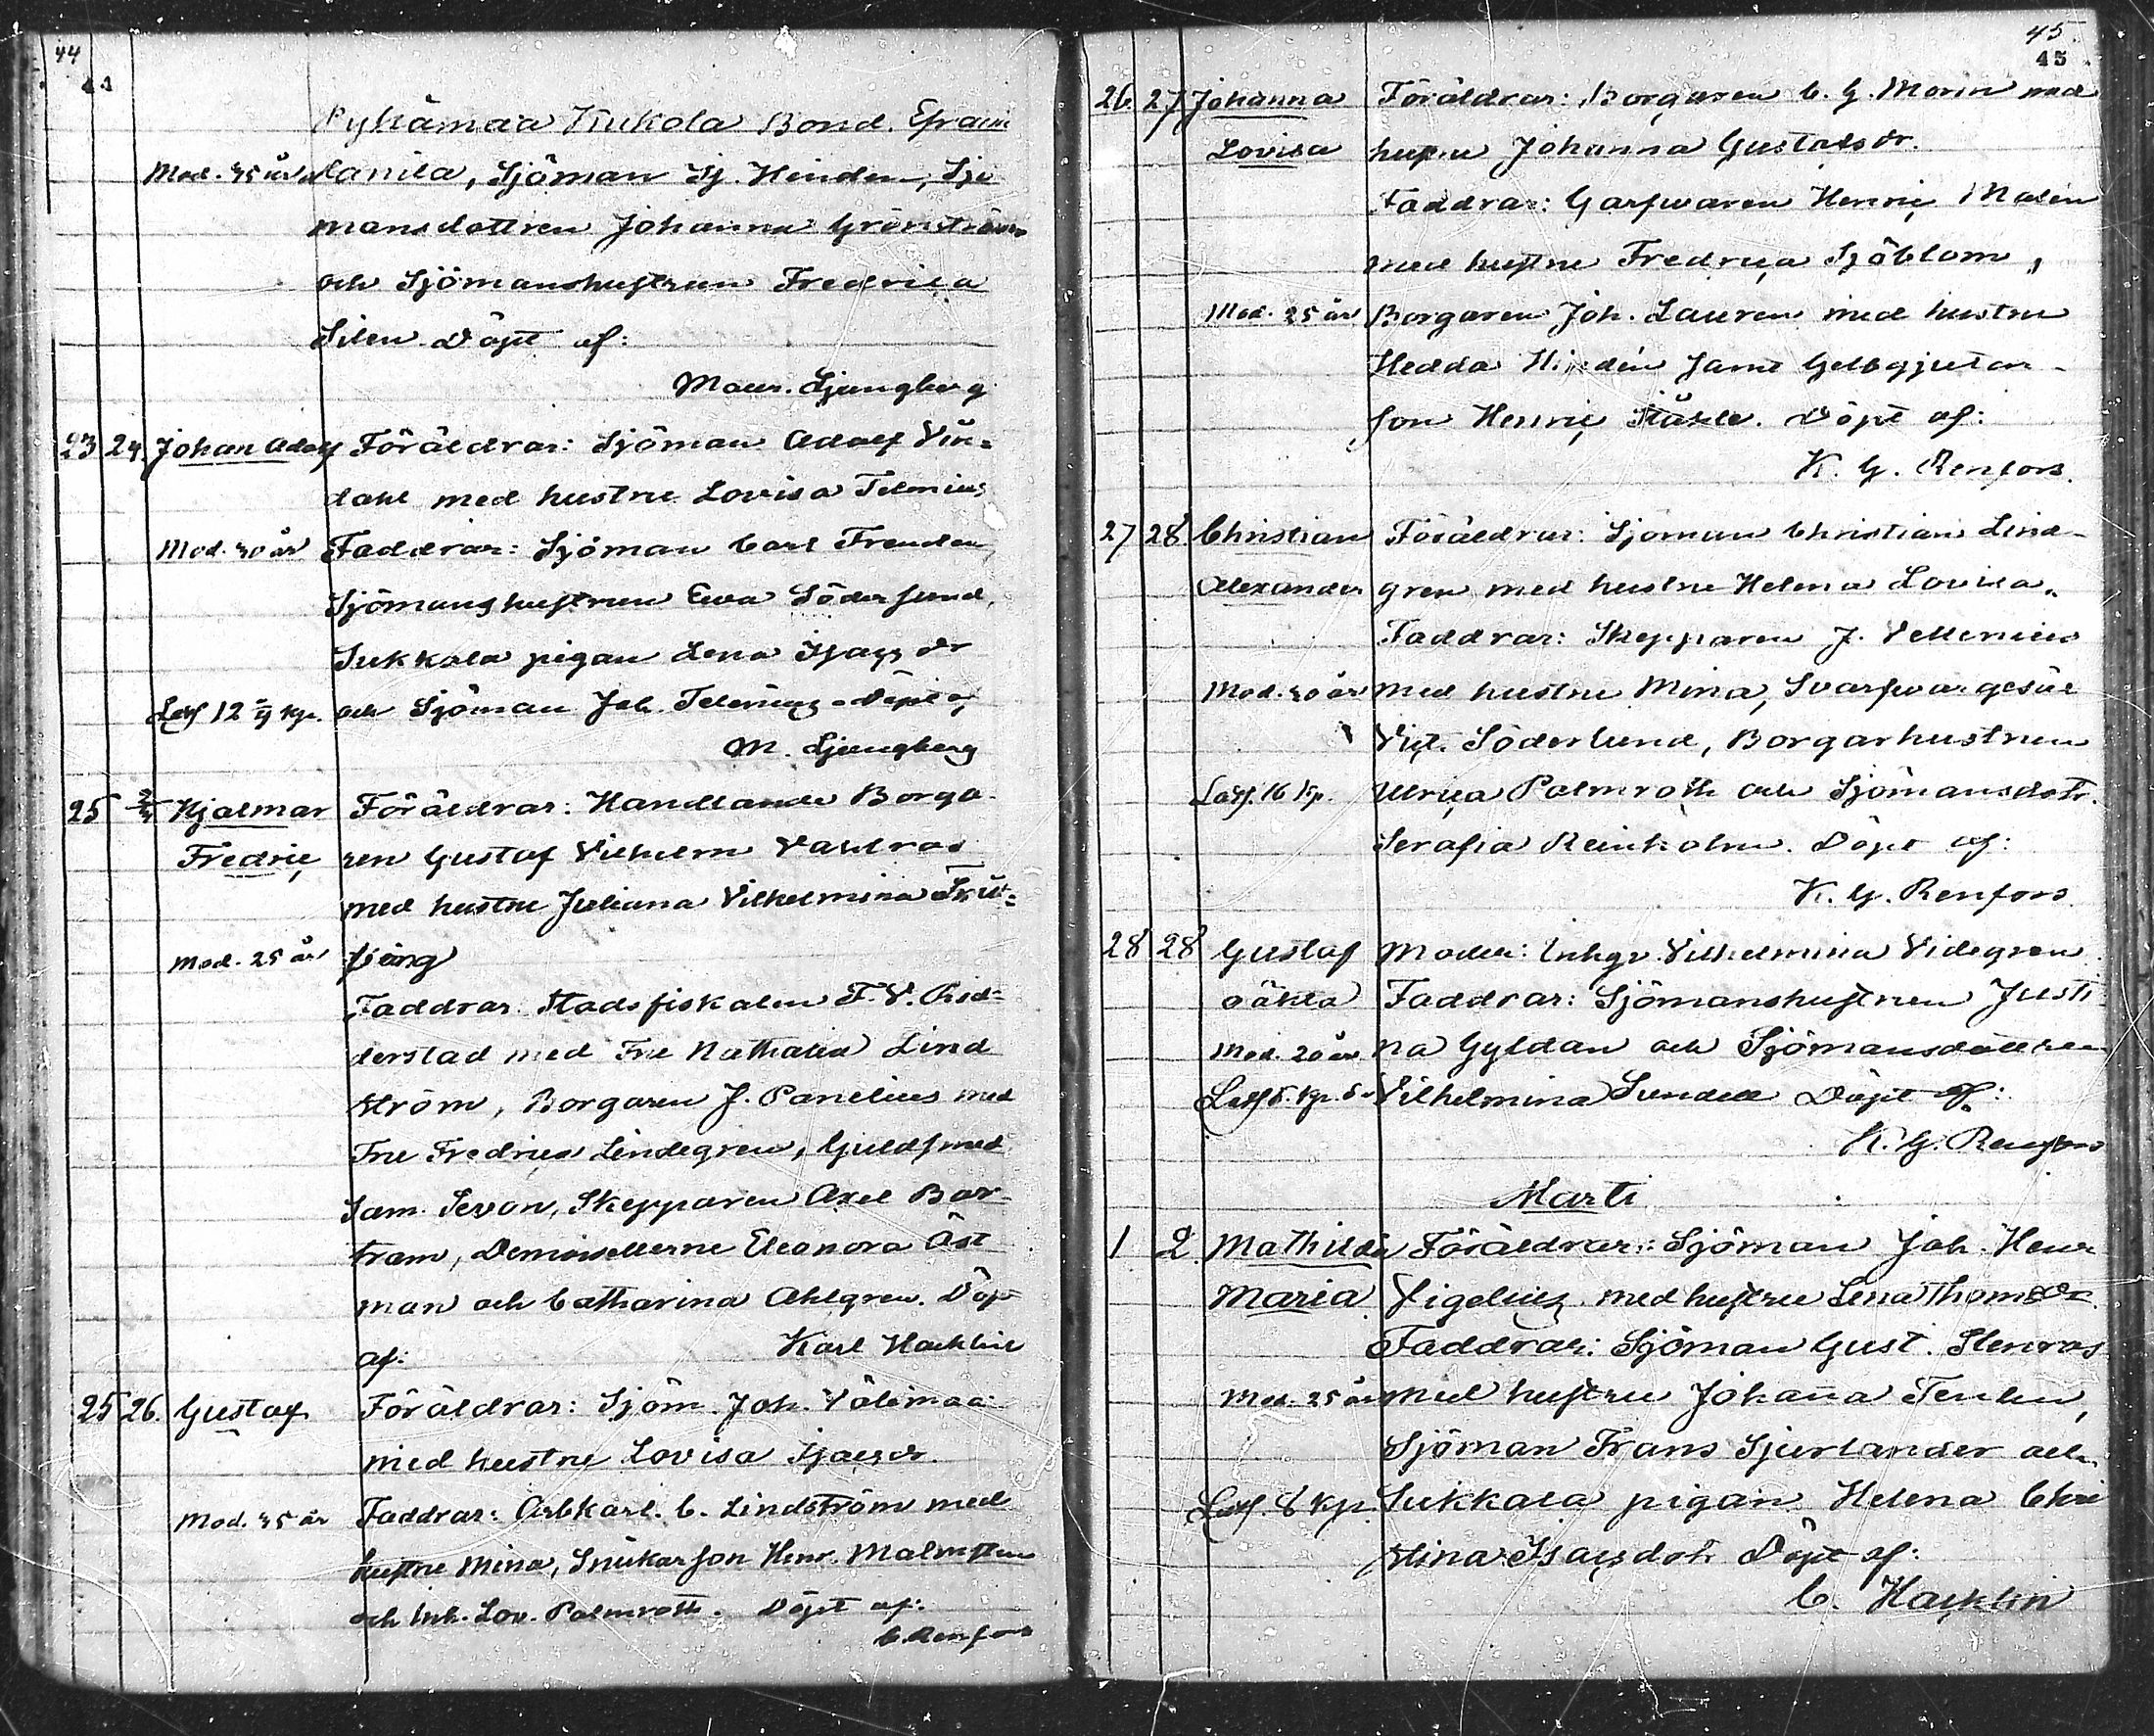 44
44
Pyhämaa Kukola Bond. Efraim
Mod. 45 år Sjöman Sj. Hinden, Sjö
mansdottren Johanna Grönström
och Sjömanshustrun Fredrica
Silen Döpt af:
Maur. Ljungberg
23 24. Johan Adolf Föräldrar: Sjöman Adolf Vin-
dahl med hustru Lovisa Telenius
Mod. 40 år Faddrar: Sjöman Carl Frendén
Sjömanshustrun Eva Söderlund,
Sukkala pigan Lena Isacs dr
12 kp. och Sjöman Joh. Telenius Döpt af
M. Ljungberg
25 Hjalmar Föräldrar: Handlande Borga-
Fredric ren Gustaf Vilhelm Vahlroos
med hustru Juliana Vilhelmina
Mod. 25 år
Faddrar: Stadsfiskalen F. V. Rid-
derstad med Fru Nathalia Lind
ström, Borgaren J. Panelius med
Fru Fredrica Lindegren, Guldsmed
Sam. Sevon, Skepparen Axel Bar-
tram, Demoisellerne Eleonora Öst
man och Catharina Ahlgren. Döpt
af: Karl Hacklin
25 26. Gustaf Föräldrar: Sjöm. Joh. Välimaa
med hustru Lovisa Isacsdr.
Mod. 45 år Faddrar: Arbkarl. C. Lindström med
hustru Mina, Snickarson Henr. Malmsten
och Inh. Lov. Palmroth. Döpt af:
C. Renfors
45.
45
26. 27 Johanna Föräldrar: Borgaren C. G. Morin med
Lovisa hustru Johanna Gustafsdr.
Faddrar: Garfvaren Henric Malén
med hustru Fredrica Sjöblom,
Mod. 25 år Borgaren Joh. Lauren med hustru
Hedda Hindén samt Gelbgjutar-
son Henric Ståhle. Döpt af:
K. G. Renfors.
27 28. Christian Föräldrar: Sjöman Christian Lind-
Alexander gren med hustru Helena Lovisa.
Faddrar: Skepparen J. Vellenius
Mod. 40 år med hustru Mina, Svarfvargesäl
Vict. Söderlund, Borgarhustrun
16 kp. Ulrica Palmroth och Sjömansdotr.
Serafia Reinholm. Döpt af:
K. G. Renfors.
28 28 Gustaf Moder: Inhgr. Vilhelmina Videgren
oäkta Faddrar: Sjömanshustrun Justi
Mod. 20 år na Gyldan och Sjömansdottren
Vilhelmina Sundell Döpt af:
K. G. Renfors
Marti
1 2. Mathilda Föräldrar: Sjöman Joh. Henr
Maria Vigelius med hustru Lena Thomsdr.
Faddrar: Sjöman Gust. Stenroos
Mod. 25 år med hustru Johanna Tenlen,
Sjöman Frans Sjurlander och
8 kp. Sukkala pigan Helena Chri
stina Isacsdotr Döpt af:
C. Hacklin